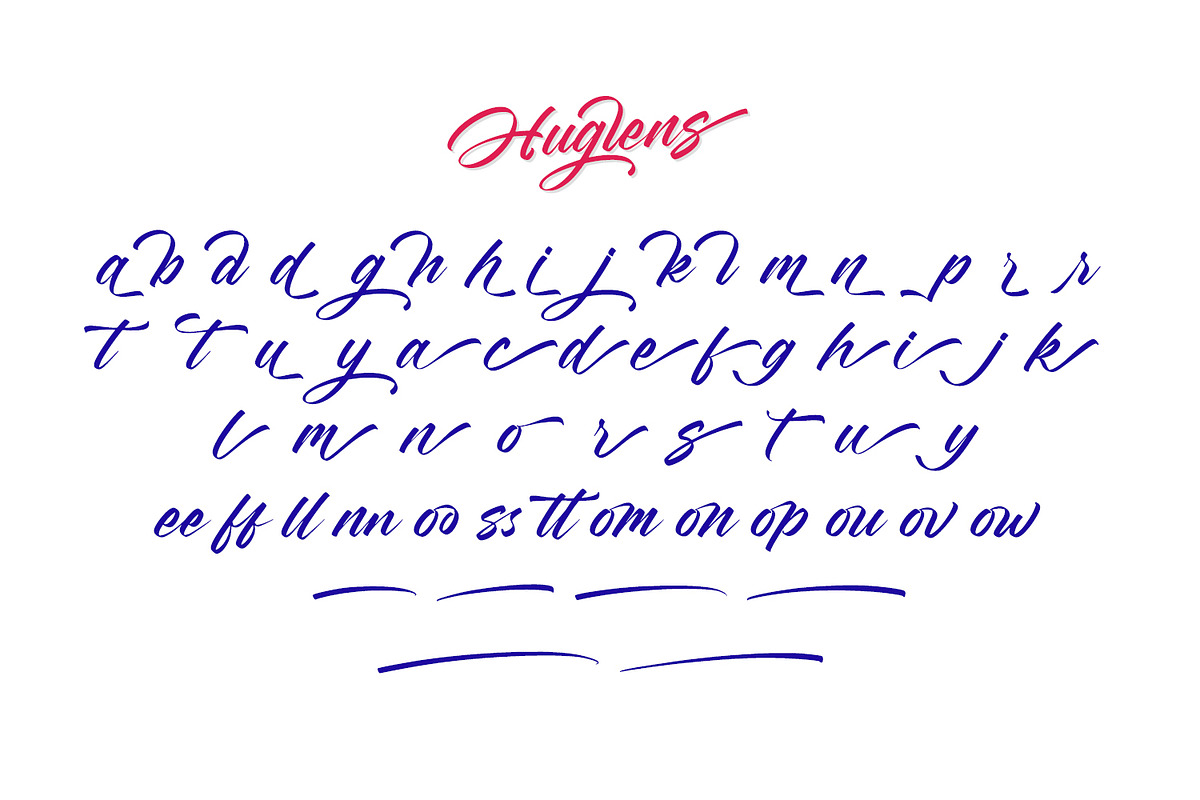 Huglens
a b d d g h h i j k l m n p r r
t t u y a c d e f g h i j k
l m n o r s t u y
ee ff ll nn oo ss tt om on op ou ov ow